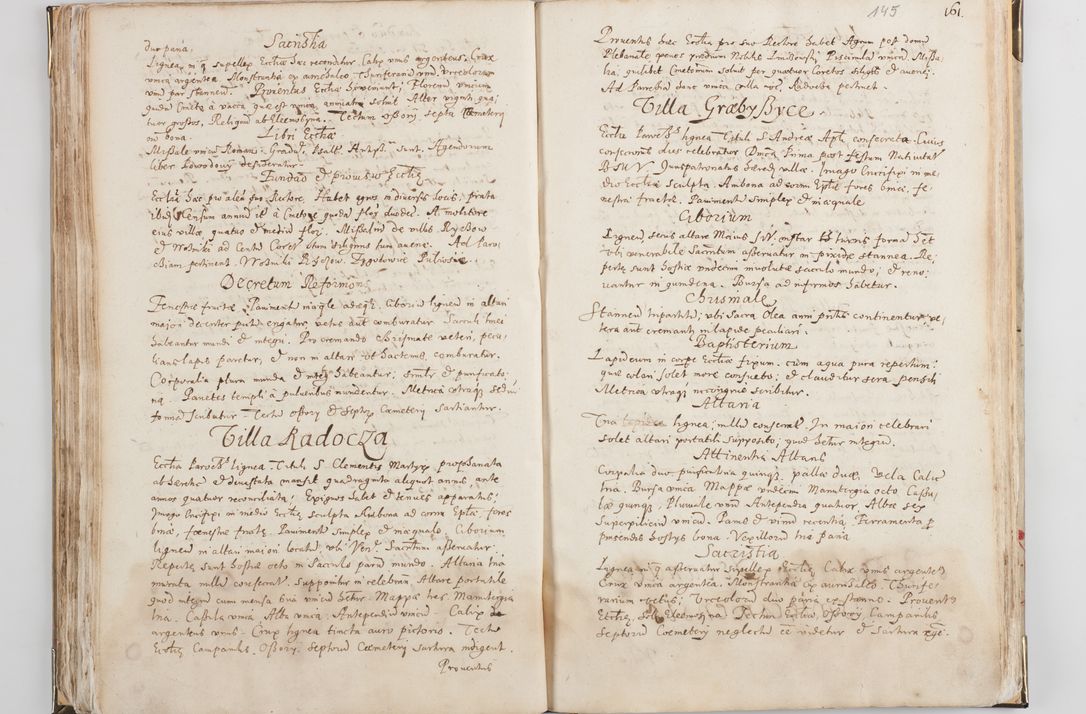 duo paria.
Sacristia
Lignea, in q supellex Ecclae hac reconditur. Calix unus argenteus, Crux
unica argentea. Monstrantia ex aurichalco. Thuriferarium unum. Urceolorum
unum par stanneum. Proventus Ecclae proveniunt; Florenus unicus
quem Cmeto a vacca, quae est unica, annuatim solvit. Alter viginti qua-
tuor grossos. Reliquum ab Eleemosyna. Tectum Ossorij septa Coemeterij
in bona.
Libri Ecclae
Missale unum Roman. Graduale, Psalt. Antiph. sunt. Agendorum
liber Powodowsij desideratur.
Fundaō et provisio Ecclae
Ecclia haec pro alea suo Rectore. Habet agros in diversis locis, prata
ibidem. Censum annuum
eius villae quatuor et medium flor. Missalia de villis Ryczow
et Woźniki ad Centum Coretos
chiam pertinent. Woźniki Ryczow. Zygotowice Pulio
Decretum Reformonis
Fenestrae fractae. Pavimentum inaequale adaeq. Ciborium ligneum in altari
maiori decenter
habeantur mundi et integri. Pro cremando Chrismate veteri, pecu-
liaris lapis paretur, et non in altari ut hactenus, comburatur.
Corporalia plura munda et habeantur; similiter et purificato-
ria. Parietes templi a pulveribus mundentur. Metrica utraque
Tecta Ossorij et septorum Cemeterij sartiantur.
Villa Radocza
Ecclia Parochlis lignea. Tituli S. Clementis Martyris prophanata
ab haeretic et devastata mansit quadraginta aliquot annis, ante
annos quatuor reconciliata; Exiguos habet et tenues apparatus;
Imago Crucifixi in medio Ecclae sculpta Ambona ad cornu Eplae. fores
binae, foenestrae fractae. Pavimentum simplex et inaequale. Ciborium
ligneum in altari maiori locatum, ubi Ven. Sacrtum asservatur.
Repertae sunt hostiae octo in Sacculo parum mundo. Altaria tria
murata nullum consecrat. Supponitur in celebran. Altare portatile
quod integrum cum mensa una unicum hetur. Mappae hes. Manutergia
tria. Casula unica Alba unica. Antependium unicum. Calix
argenteus unus. Crux lignea tincta auro pictorio. Tecta
Ecclae Campanilis. Ossorij. septorum Coemeterij sartura indigent.
Proventus
145 161.
Proventus haec Ecclia pro suo Rectore habet. Agrum post domum
Plebanalem penes praedium Piscinulam unicam. Missa-
lia, quilibet Cmetonum solvit per quatuor Coretos siliginis et avenae.
Ad Parochiam hanc unica villa Radocza pertinet.
Villa GræbyByce
Ecclia Parochlis lignea Tituli S. Andreae Apli consecrata. Cuius
consecraonis dies celebratur Dnica Prima post festum Nativitat
B M V. Juris patronatus haeredum villae. Imago Crucifixi in me-
dio Ecclae sculpta. Ambona ad cornu Eplae fores binae, fe-
nestrae fractae. Pavimentum simplex et inaequale
Ciborium
Ligneum, secus altare Maius instar turris forma
ubi venerabile Sacrmtum asservatur in pixide stannea. Re-
pertae sunt hostiae undecim involutae sacculo mundo; et reno-
vantur in quindena. Bursa ad infirmos habetur.
Chrismale
Stanneum tripartitum; ubi Sacra Olea anni pntis continentur ve-
tera aut cremantur in lapide peculiari.
Baptisterium
Lapideum in corpe Ecclae fixum. cum aqua pura repertum;
quae colari solet more consueto; et clauditur sera pensili
Metrica utraque scribitur.
Altaria
Tria lignea; nullum consecrat. In maiori celebrari
solet altari portatili supposito; quod hetur integrum.
Attinentia Altaris
Corporalia duo purificatoria quinque. pallae duae. Vela Calic
tria. Bursa unica Mappae undecim Manutergia octo. Casu-
lae quinque, Pluviale unum Antependia quatuor. Albae sex
Superpelliceum unicum. Panis et vinum recentia. Ferramenta p
pinsendis hostys bona. Vexillorum tria paria
Sacristia
Lignea in q asservatur supellex Ecclae. Calix unus argenteus
Crux unica argentea. Monstrantia ex aurichalco. Thurife-
rarium vetus; Urceolorum duo paria ex stanno. Proventus
Ecclae, sola Eleemosyna. Tectum Ecclae, Ossorij Campanilis
septorum Coemeterij neglectum esse videtur et sartura eget.